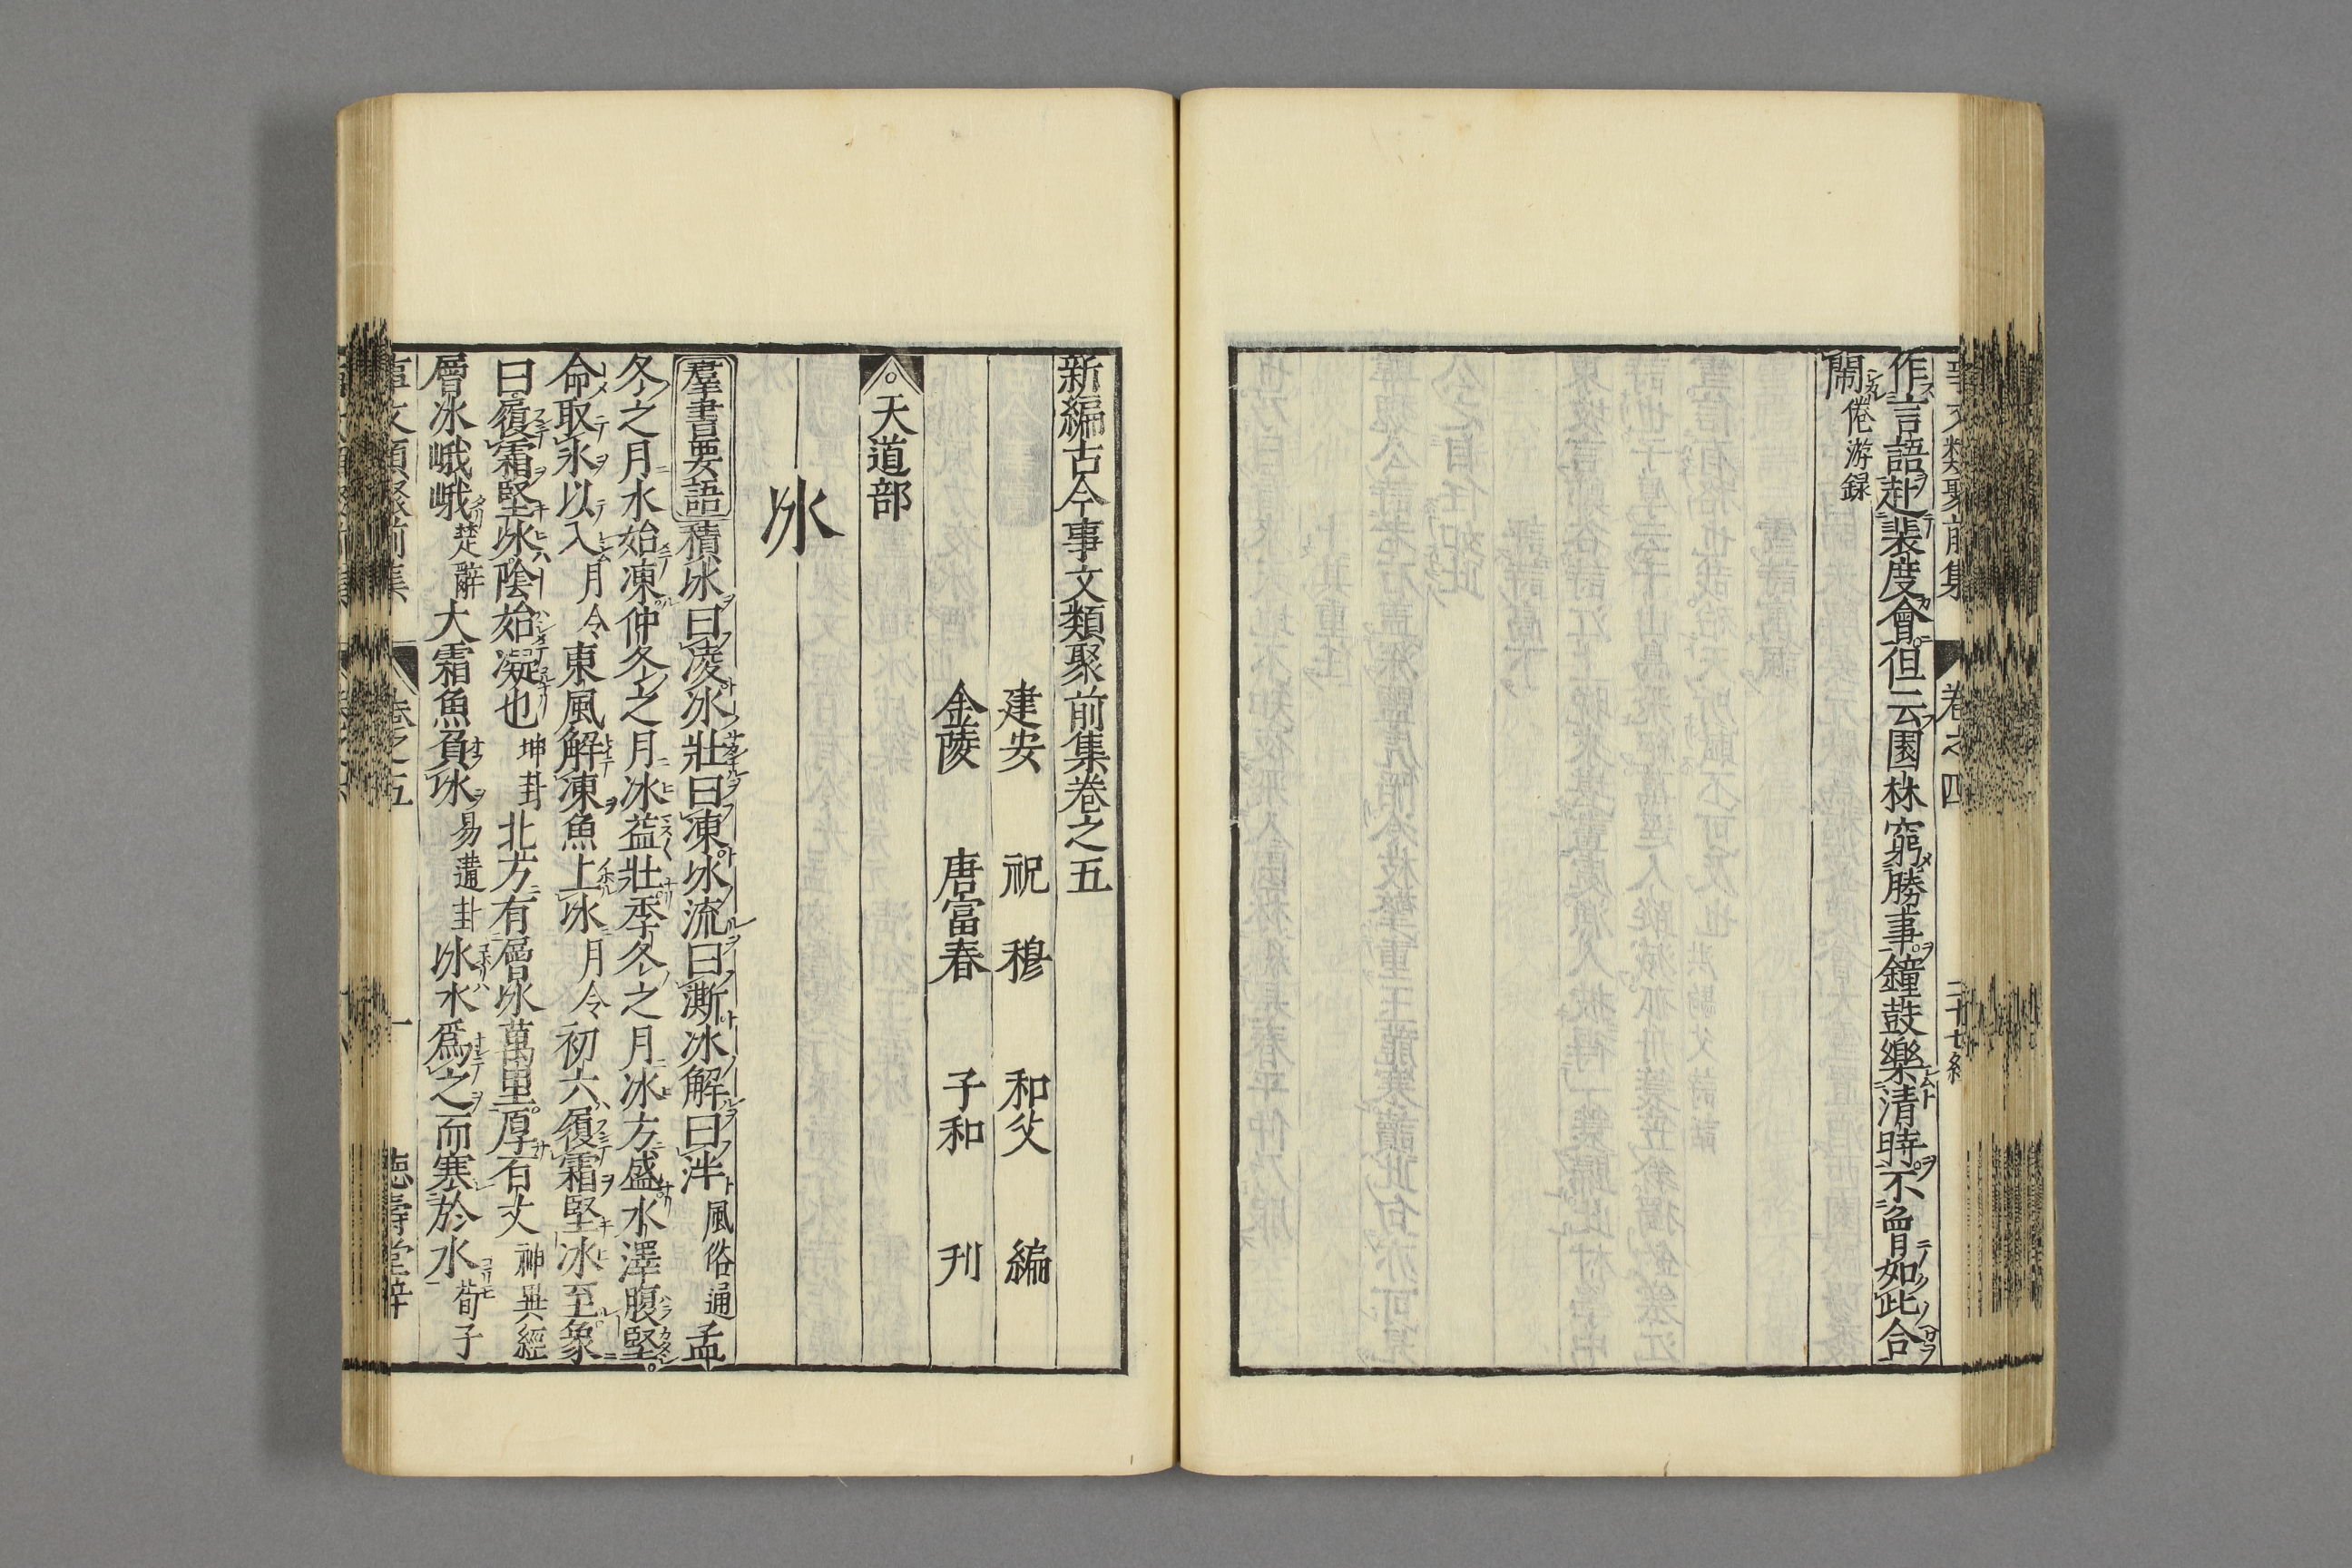 作言語赴裴度會但云園林窮勝事鐘鼓樂清時不曾如此合
閙倦游録
新編古今事文類聚前集卷之五
建安 祝穆 和父 編
金陵 唐富春 子和 刋
天道部
氷
羣書要語積氷曰凌氷壯曰凍氷流曰澌氷解曰泮風俗通孟
冬之月水始凍仲冬之月冰益壯季冬之月冰方盛水澤腹堅
命取氷以入月令東風解凍魚上氷月令初六履霜堅冰至象
曰履霜堅氷陰始凝也坤卦北方有層氷萬里厚百丈神異經
層冰峨峨楚辭大霜魚負氷易遘卦氷水爲之而寒於水荀子
事文類聚前集 卷之五 一 德壽堂梓